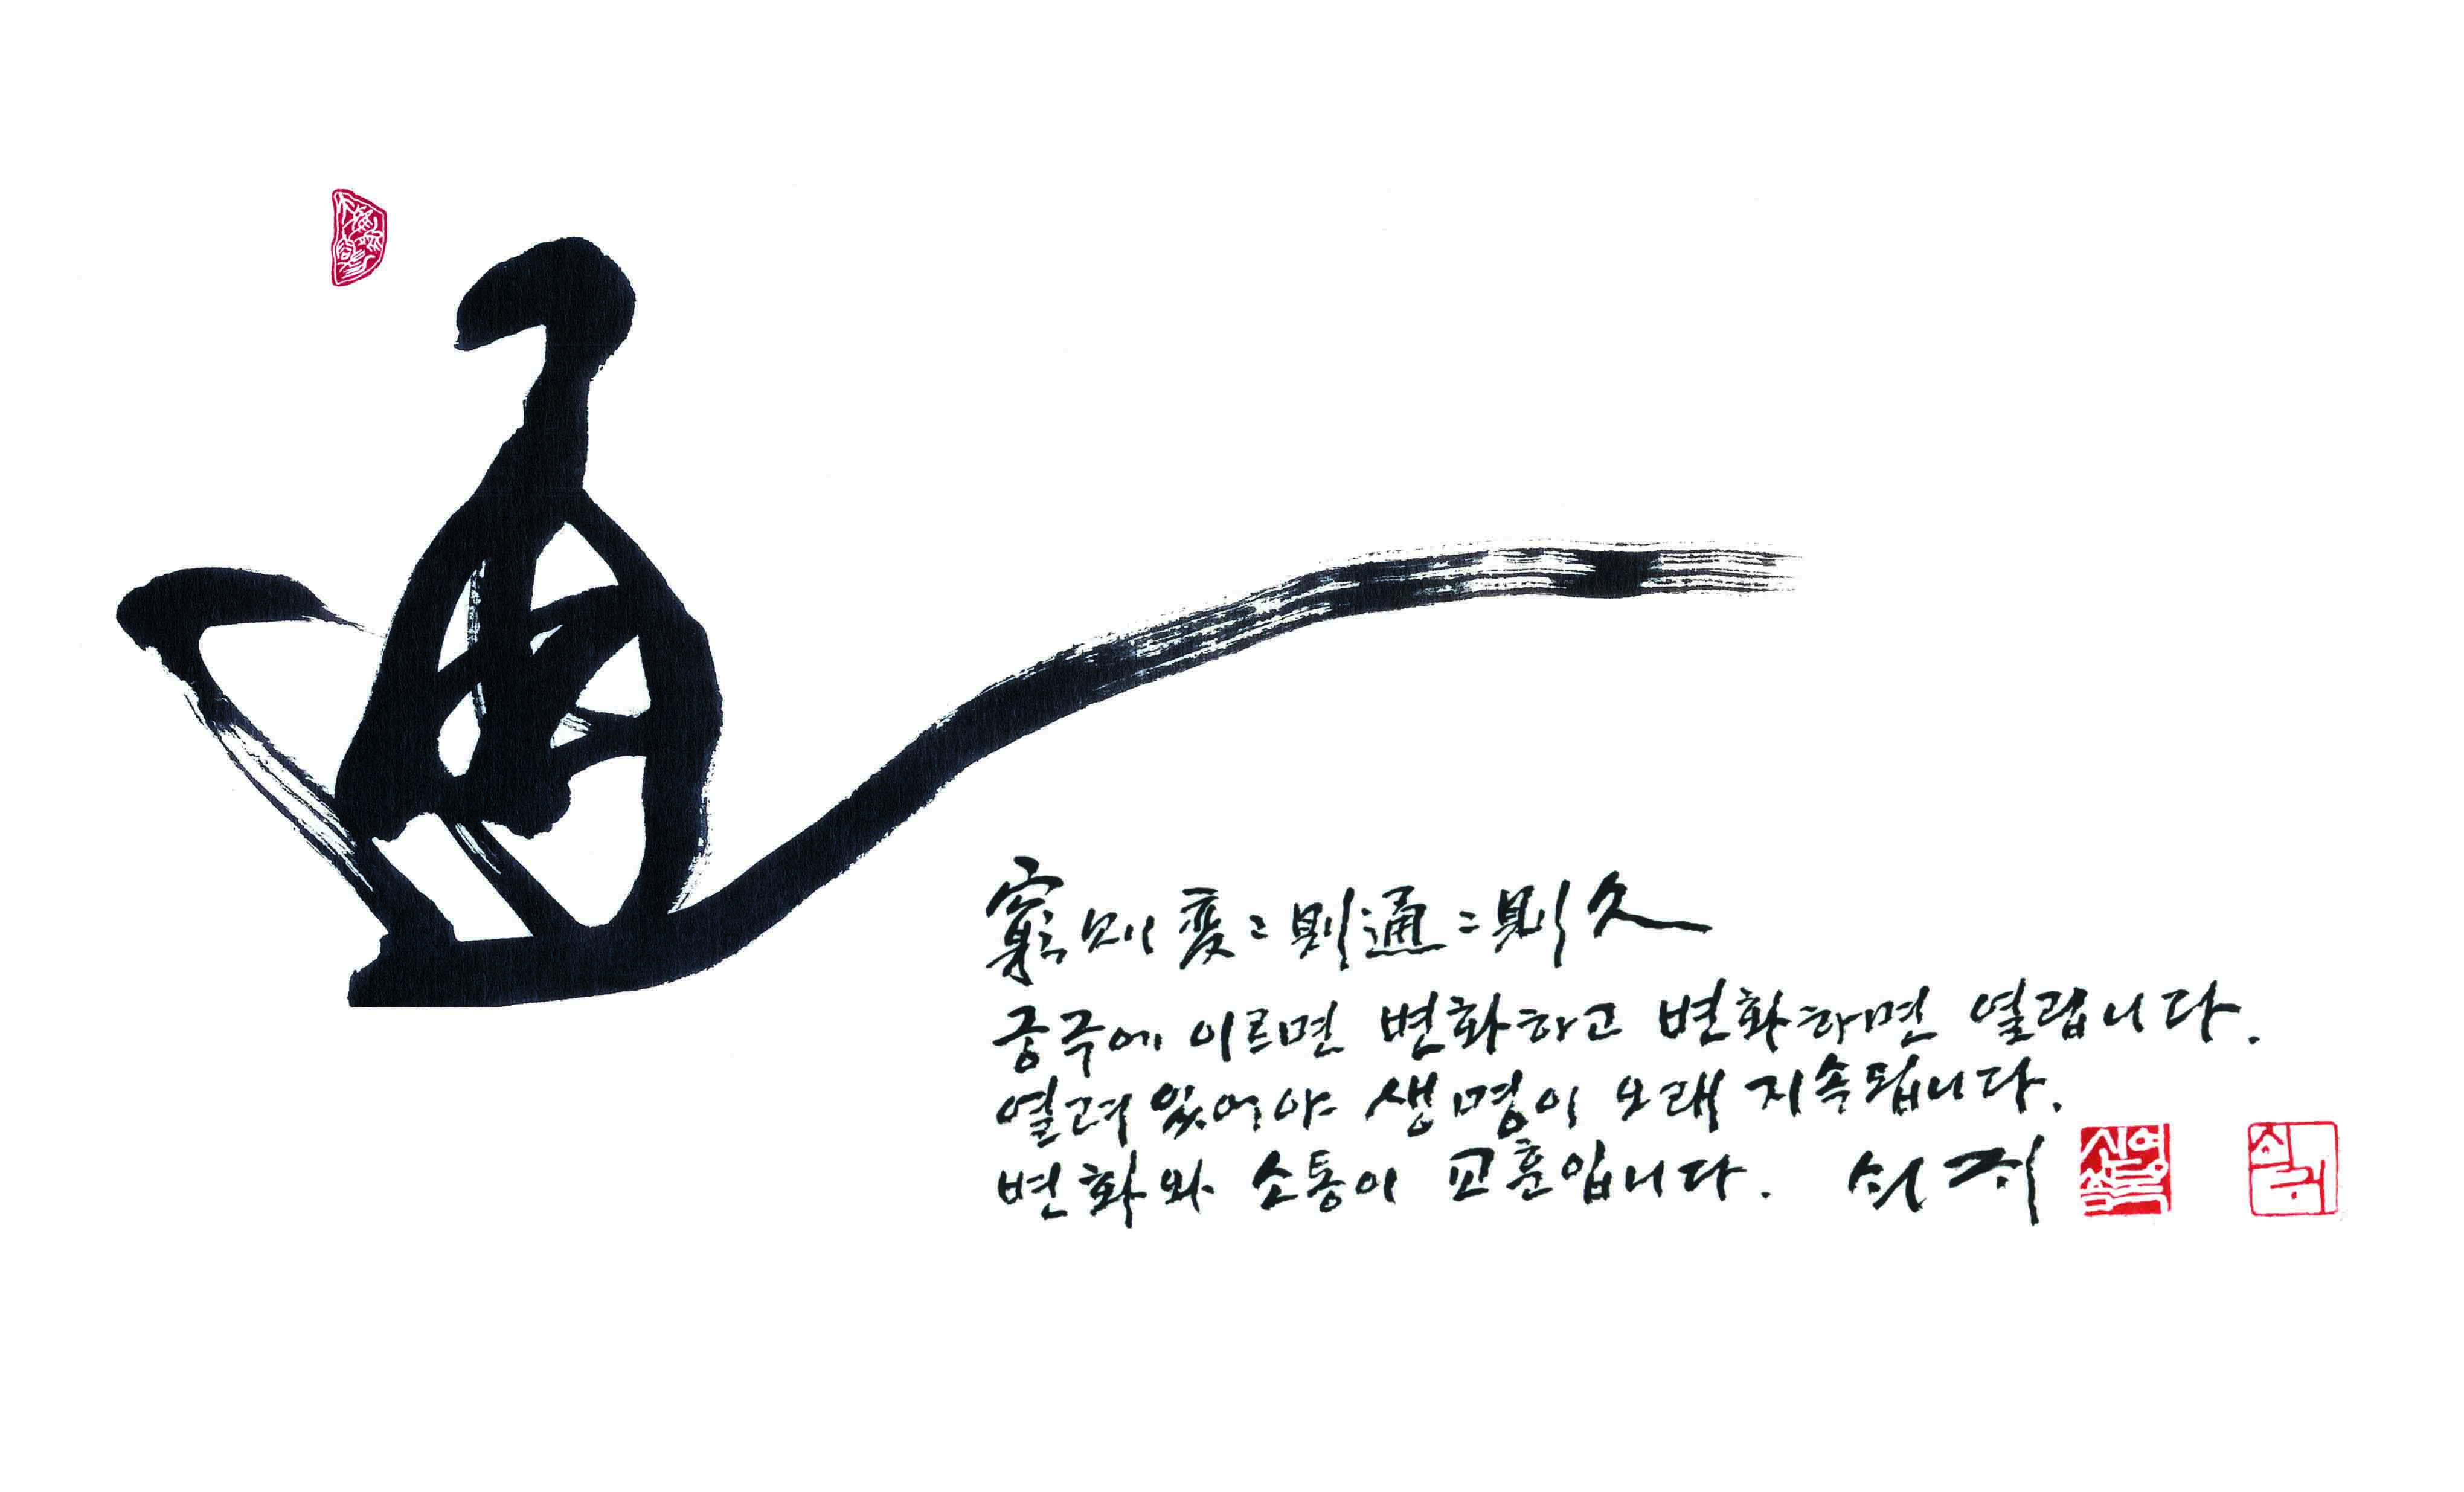 通
窮則変〻則通〻則久
궁극에 이르면 변화하고 변화하면 열립니다.
열려있어야 생명이 오래 지속됩니다.
변화와 소통이 교훈입니다. 쇠귀
신영복
쇠귀